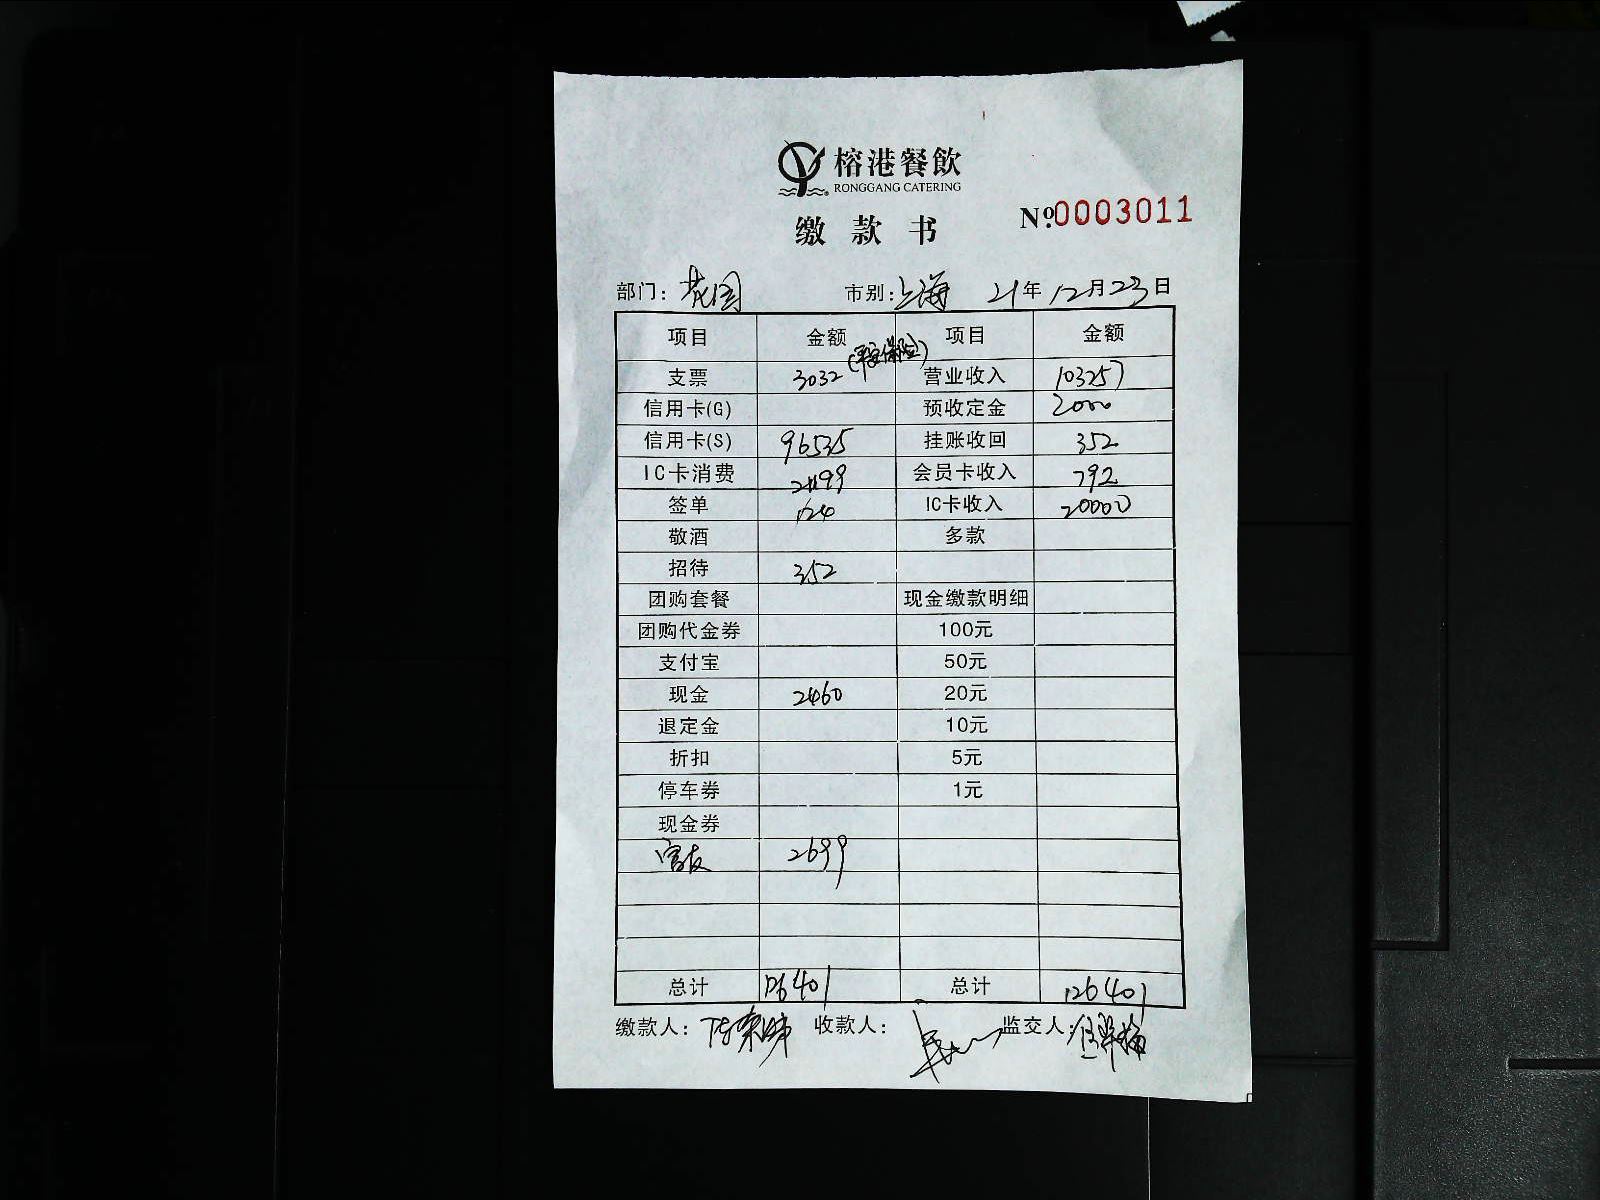 榕港餐飲
RONGGANG CATERING
缴款书
№0003011
部门：花园 市别：上海 21年12月23日
项目 金额 项目 金额
支票 3032 (平安保险) 营业收入 103257
信用卡(G) 预收定金 2000
信用卡(S) 96535 挂账收回 352
IC卡消费 21199 会员卡收入 792
签单 124 IC卡收入 20000
敬酒 多款
招待 352
团购套餐 现金缴款明细
团购代金券 100元
支付宝 50元
现金 2460 20元
退定金 10元
折扣 5元
停车券 1元
现金券
富友 2699
总计 126401 总计 126401
缴款人： 收款人： 监交人：